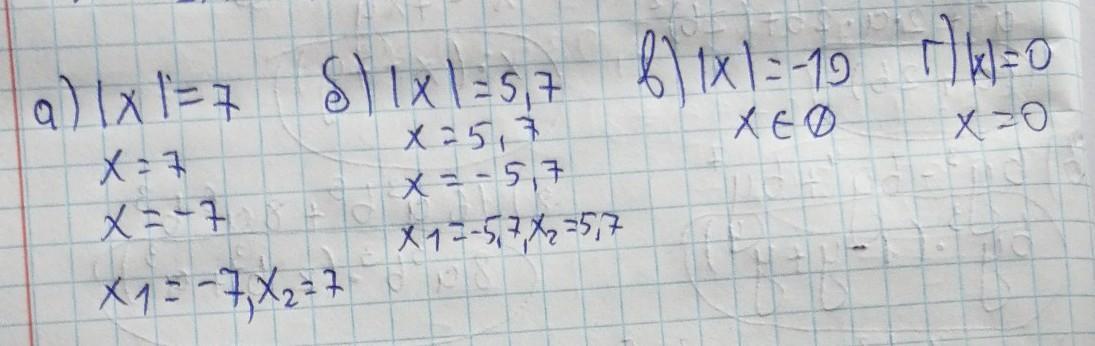 а) |x| = 7
x = 7
x = -7
x1 = -7, x2 = 7
б) |x| = 5,7
x = 5,7
x = -5,7
x1 = -5,7, x2 = 5,7
в) |x| = -19
x ∈ ∅
г) |x| = 0
x = 0